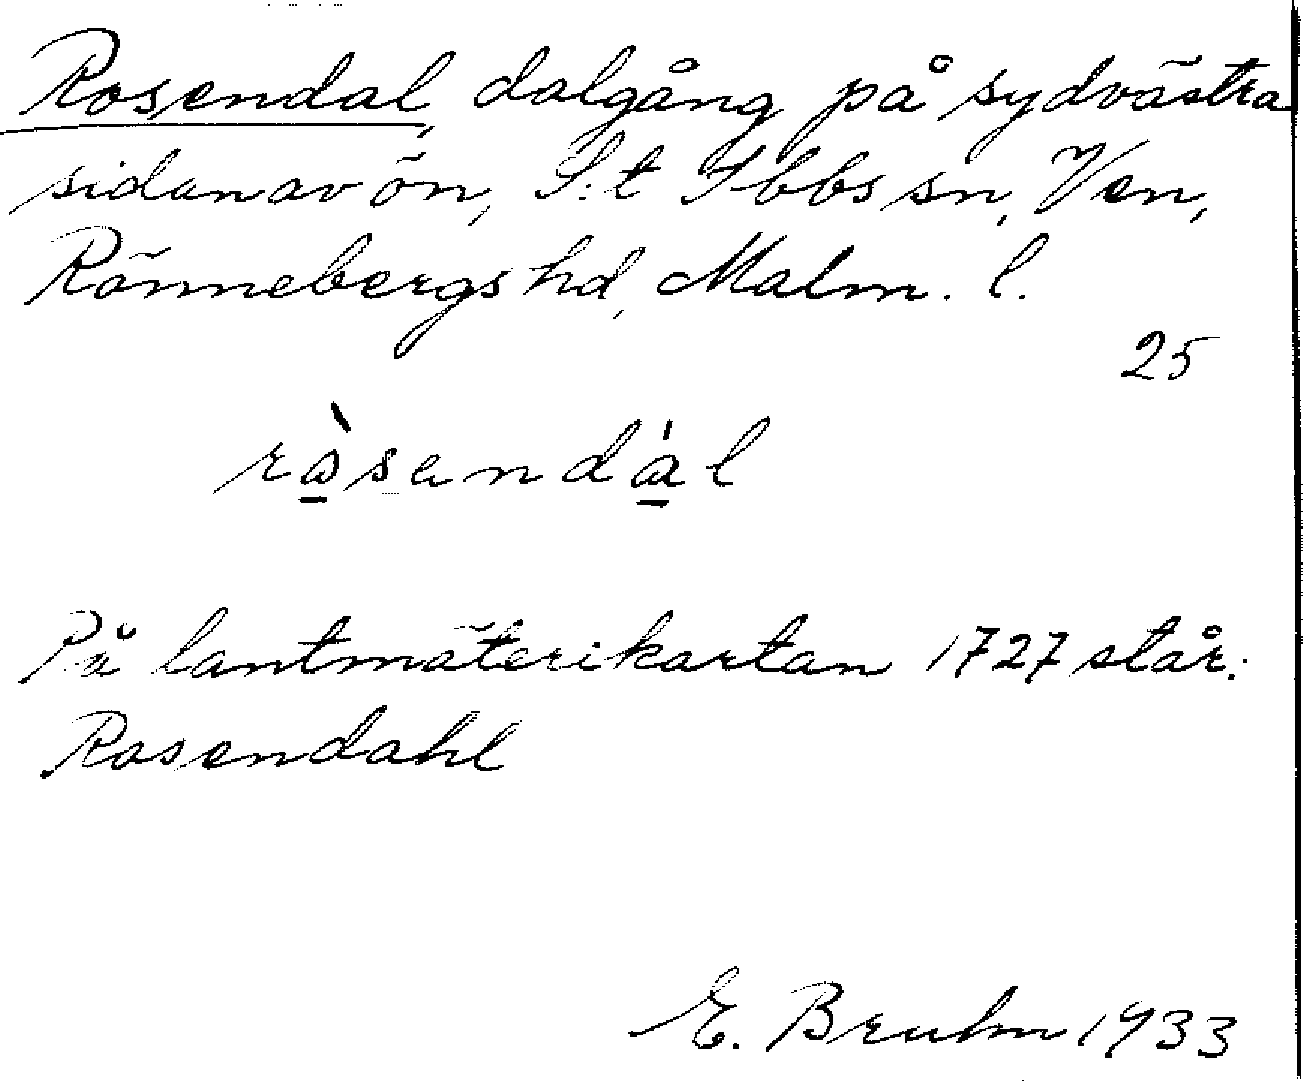 Rosendal, dalgång på sydvästra
sidan av ön, S:t Ibbs sn, Ven,
Rönnebergs hd, Malm. l.
25
rò̱sendá̱l
På lantmäterikartan 1727 står:
Rosendahl
E. Bruhn 1933